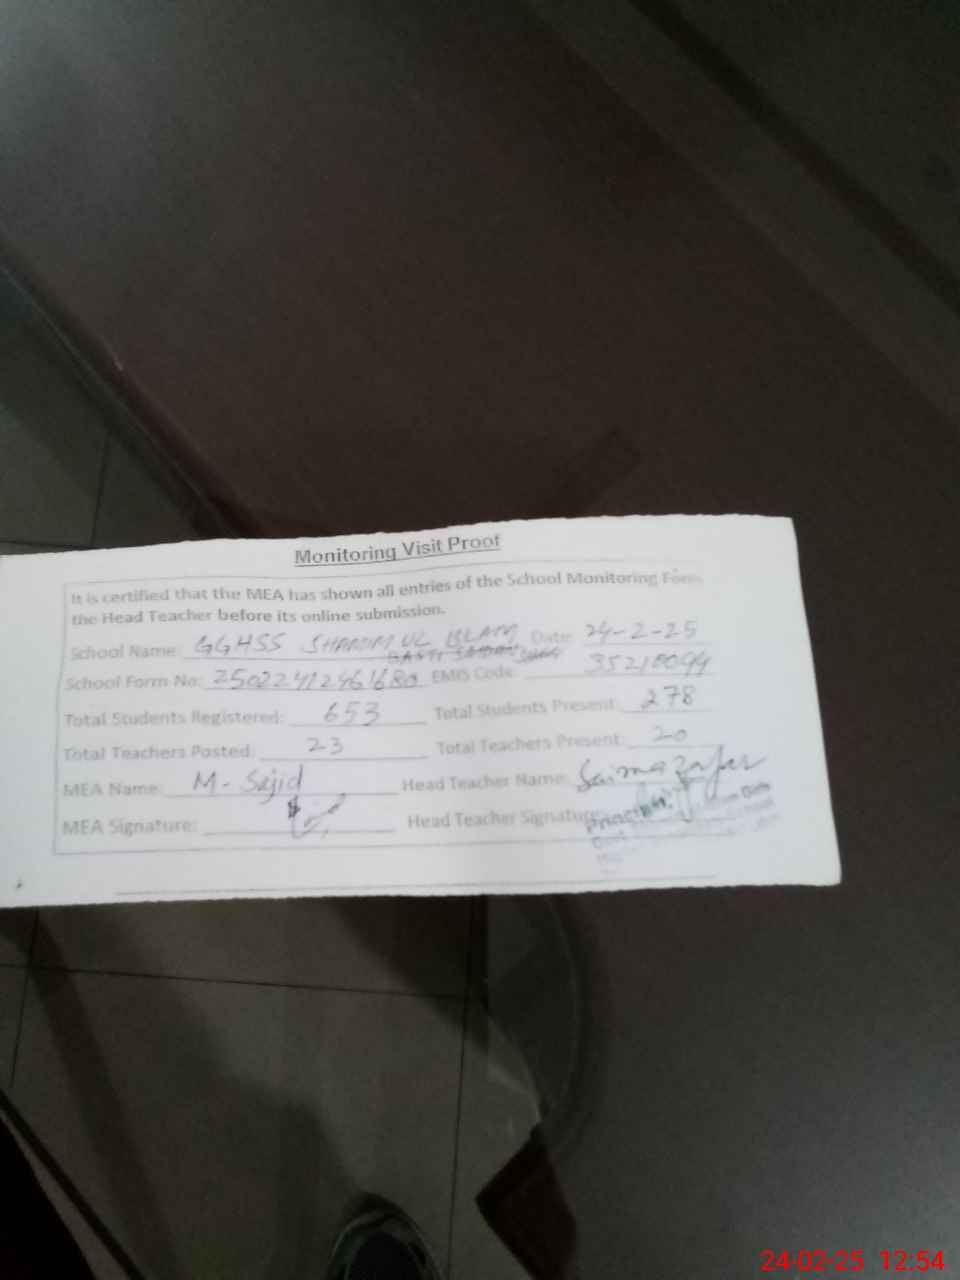 Monitoring Visit Proof
It is certified that the MEA has shown all entries of the School Monitoring Form
the Head Teacher before its online submission.
School Name: GGHSS SHAMIM UL ISLAM Date: 24-2-25
BASTI
School Form No: 25022412461680 EMIS Code: 35210094
Total Students Registered: 653 Total Students Present: 278
Total Teachers Posted: 23 Total Teachers Present: 20
MEA Name: M-Sajid Head Teacher Name: Saima Zafar
MEA Signature: Head Teacher Signature
Principal
24-02-25 12:54